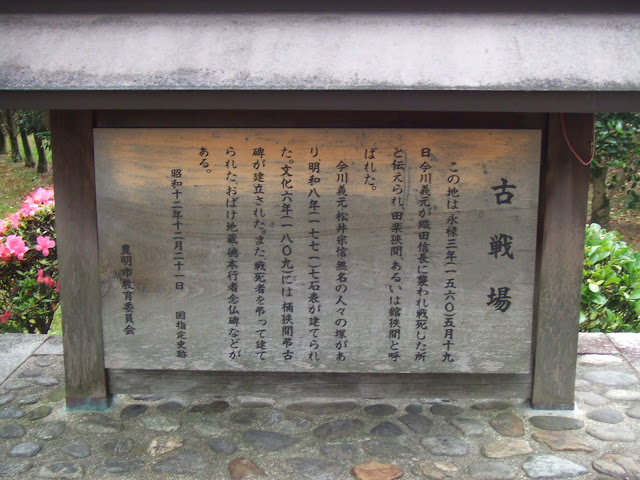 古戦場
この地は、永禄三年(一五六〇)五月十九
日、今川義元が織田信長に襲われ戦死した所
と伝えられ、田楽狭間、あるいは舘狭間と呼
ばれた。
今川義元、松井宗信、無名の人々の塚があ
り、明和八年(一七七一)七石表が建てられ
た。文化六年(一八〇九)には、桶狭間弔古
碑が建立された。また、戦死者を弔って建て
られた、おばけ地蔵、徳本行者念仏碑などが
ある。
昭和十二年十二月二十一日 国指定史跡
豊明市教育委員会